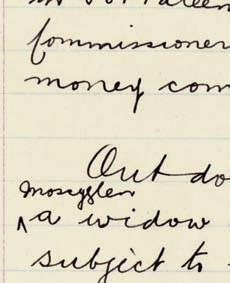 Commissioner
money com
Out do
a widow
subject to